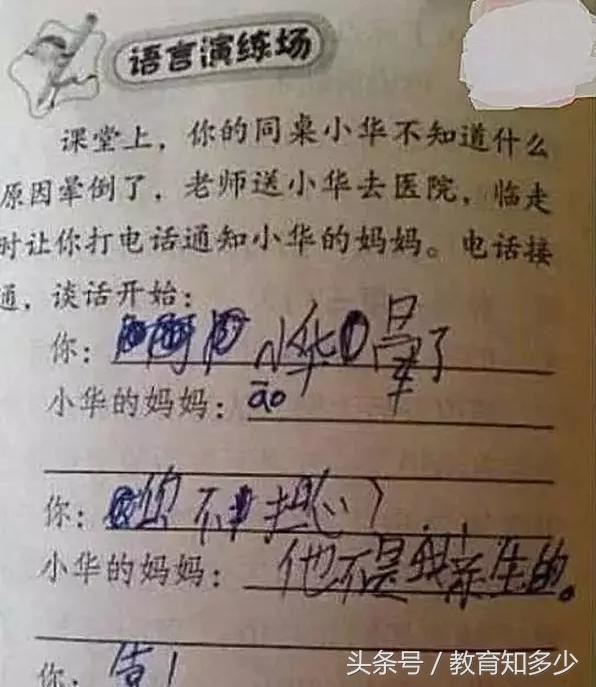 语言演练场
课堂上，你的同桌小华不知道什么
原因晕倒了，老师送小华去医院，临走
时让你打电话通知小华的妈妈。电话接
通，谈话开始：
你：小华晕了
小华的妈妈：āo
你：你不担心？
小华的妈妈：他不是我亲生的。
你：
头条号／教育知多少